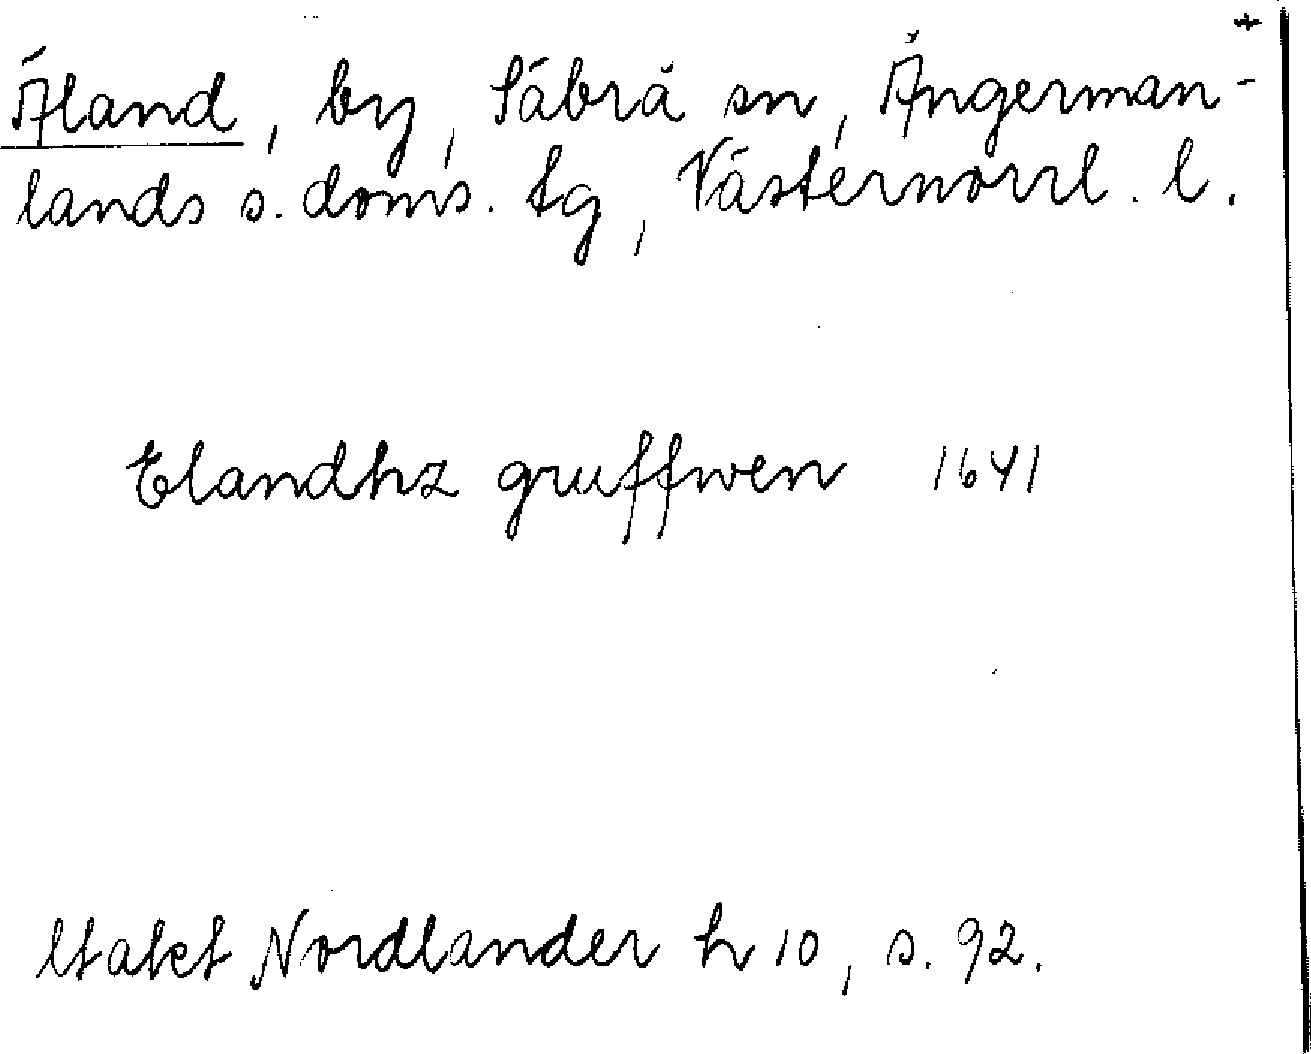 Äland, by, Säbrå sn, Ångerman-
lands s. doms. tg, Västernorrl. l.
Elandhz gruffwen 1641
Utakt Nordlander h 10, s. 92.